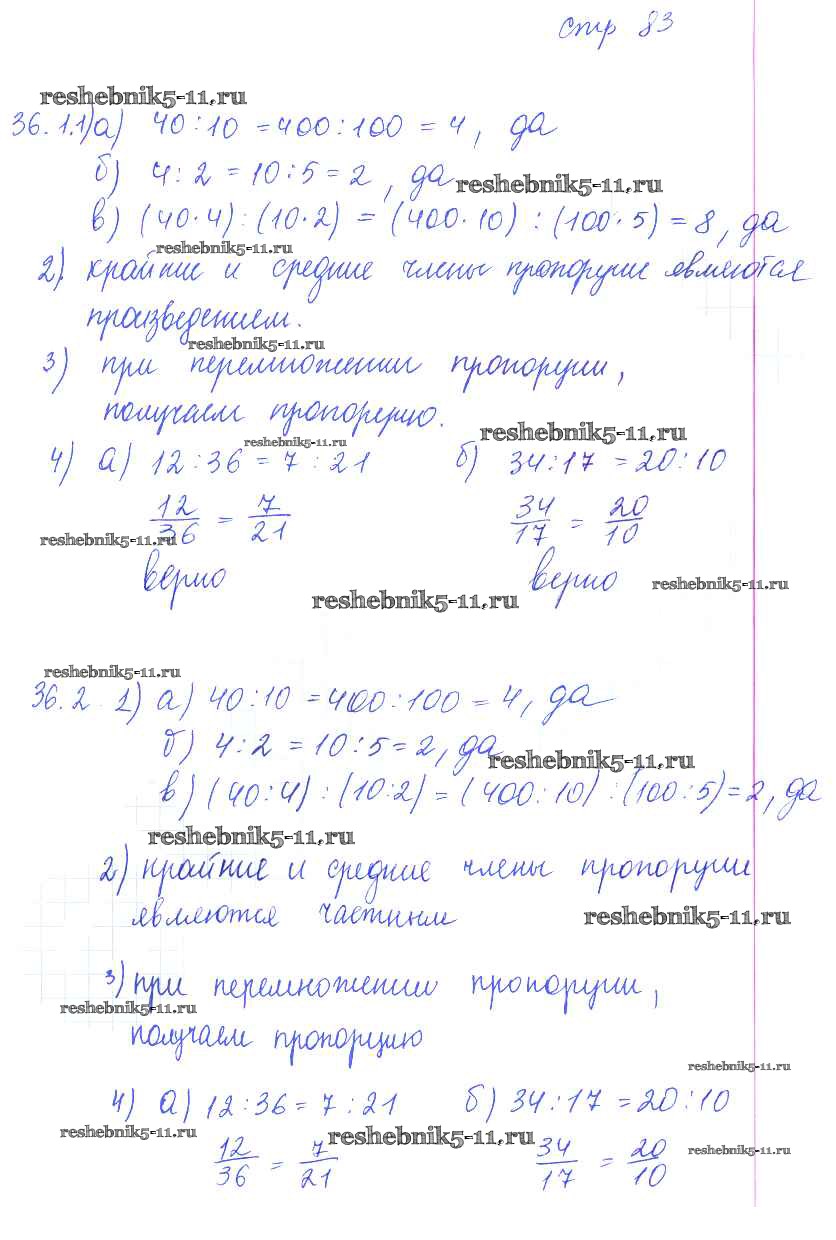 стр 83
reshebnik5-11.ru
36.1.1) а) 40:10 = 400:100 = 4, да
б) 4:2 = 10:5 = 2, да
reshebnik5-11.ru
в) (40·4):(10·2) = (400·10):(100·5) = 8, да
reshebnik5-11.ru
2) крайние и средние члены пропорции являются
произведением.
reshebnik5-11.ru
3) при перемножении пропорции,
получаем пропорцию.
reshebnik5-11.ru
reshebnik5-11.ru
4) а) 12:36 = 7:21 б) 34:17 = 20:10
12/36 = 7/21 34/17 = 20/10
reshebnik5-11.ru
верно верно
reshebnik5-11.ru
reshebnik5-11.ru
reshebnik5-11.ru
36.2 1) а) 40:10 = 400:100 = 4, да
б) 4:2 = 10:5 = 2, да
reshebnik5-11.ru
в) (40:4):(10:2) = (400:10):(100:5) = 2, да
reshebnik5-11.ru
2) крайние и средние члены пропорции
являются частным
reshebnik5-11.ru
3) при перемножении пропорции,
reshebnik5-11.ru
получаем пропорцию
reshebnik5-11.ru
4) а) 12:36 = 7:21 б) 34:17 = 20:10
reshebnik5-11.ru
reshebnik5-11.ru
12/36 = 7/21 34/17 = 20/10
reshebnik5-11.ru